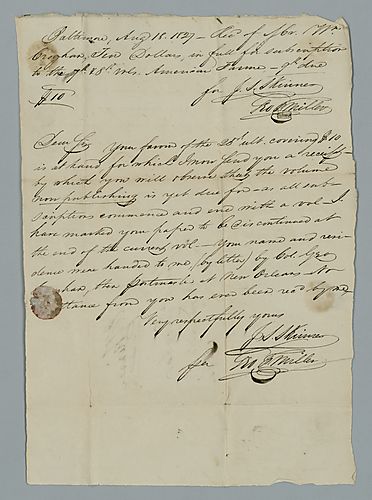 Baltimore, Aug 15. 1827 - Recd of Mr. Wm
Croghan, Ten Dollars, in full for subscription
to the 7th & 8th vols. American Farmer - 9th due
$10 for J. S. Skinner
Geo F Miller
Dear Sir Your favor of the 28th ult. covering $10
is at hand for which I now send you a receipt -
by which you will observe that the volume
now publishing is yet due for - as all sub-
scriptions commence and end with a vol - I
have marked your paper to be discontinued at
the end of the current vol - Your name and resi-
dence were handed to me (by letter) by Col Geo
Croghan, then at New Orleans - No
from you has ever been recd by me
Very respectfully yours
J. S. Skinner
per Geo F Miller